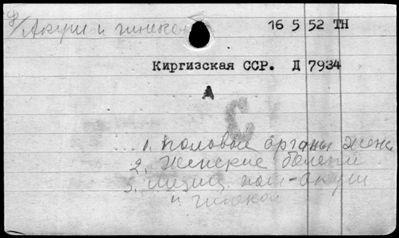 Акуш и гинекол
16 5 52 ТН
Киргизская ССР. Д 7934
А
С
1. половые органы жен.
2. Женские болезни
3. пол-акуш
и гинекол